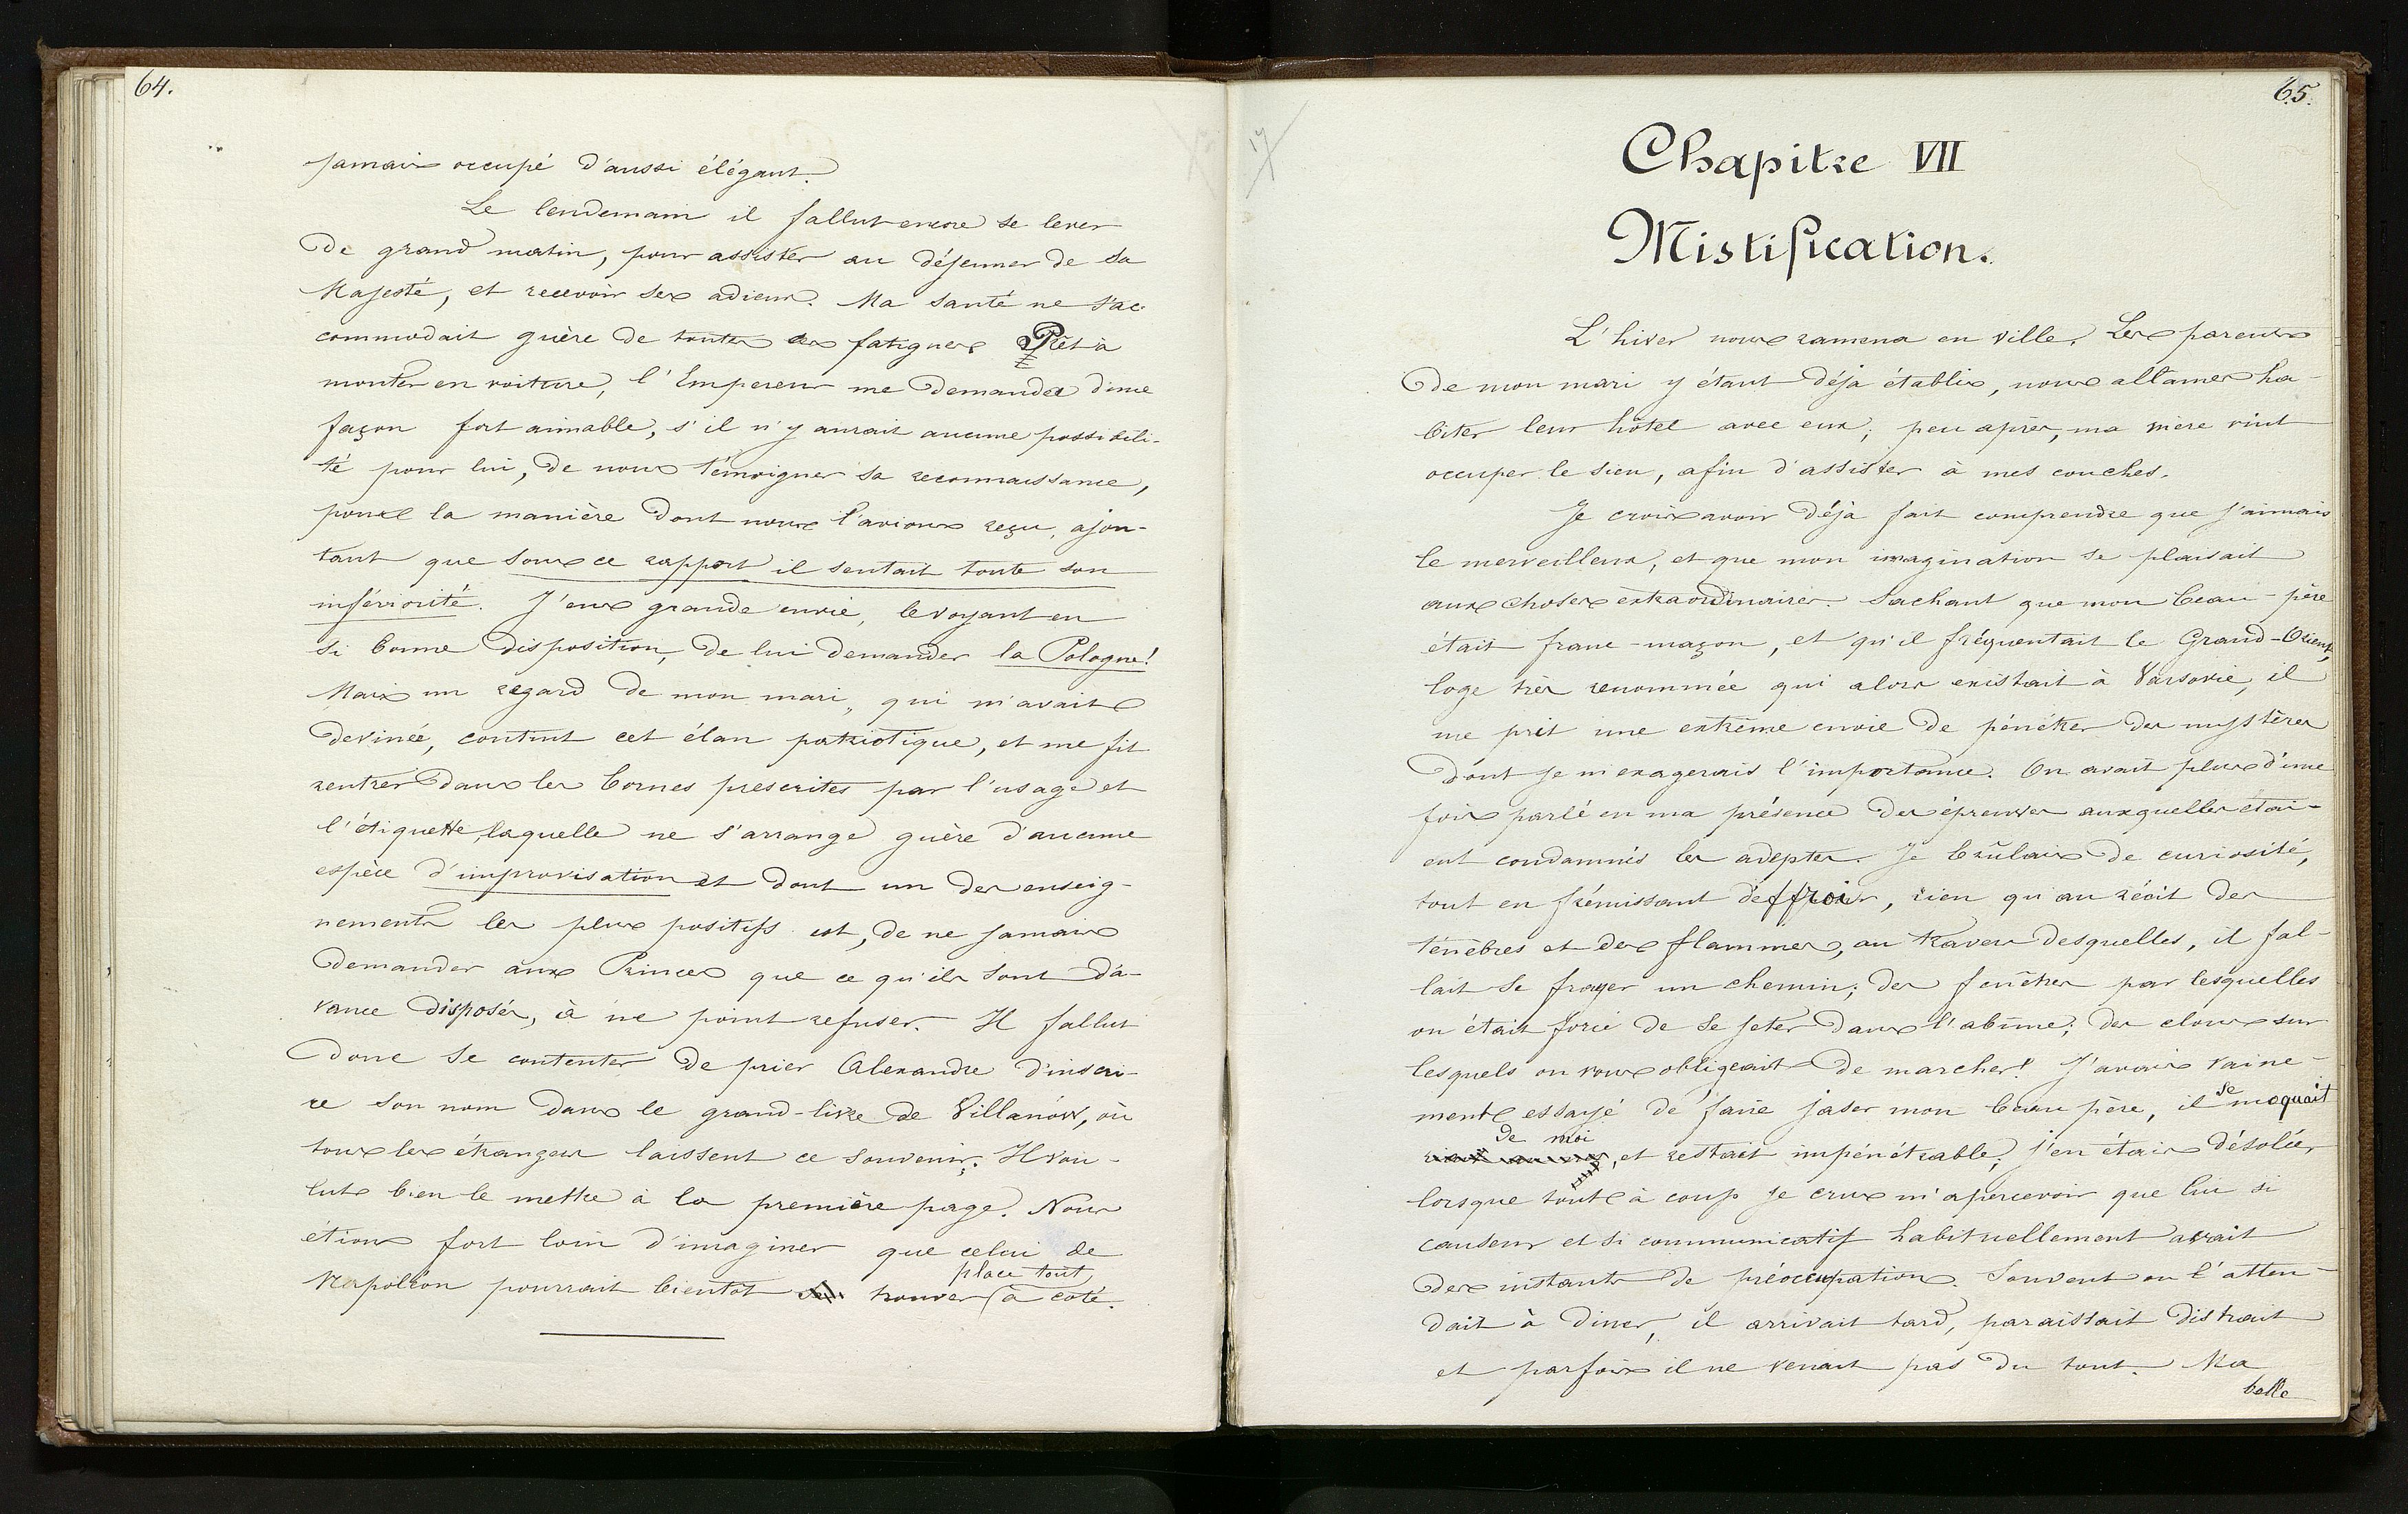 64.
jamais occupé d'aussi élégant.
Le lendemain il fallut encore se lever
de grand matin, pour assister au déjeuner de Sa
Majesté, et recevoir ses adieux. Ma santé ne s'ac
commodait guère de toutes ces fatigues. Prêt à
monter en voiture, l'Empereur me demanda d'une
façon fort aimable, s'il n'y aurait aucune possibili-
té pour lui, de nous témoigner sa reconnaissance,
pour la manière dont nous l'avions reçu, ajou-
tant que sous ce rapport il sentait toute son
infériorité. J'eus grande envie, le voyant en
si bonne disposition, de lui demander la Pologne!
Mais un regard de mon mari, qui m'avait
devinée, contint cet élan patriotique, et me fit
rentrer dans les bornes prescrites par l'usage et
l'étiquette, laquelle ne s'arrange guère d'aucune
espèce d'improvisation et dont un des enseig-
nements les plus positifs est, de ne jamais
demander aux Princes que ce qu'ils sont d'a-
vance disposés, à ne point refuser. Il fallut
donc se contenter de prier Alexandre d'inscri-
re son nom dans le grand-livre de Villanów, où
tous les étrangers laissent ce souvenir. Il vou-
lut bien le mettre à la première page. Nous
étions fort loin d'imaginer que celui de
place tout
Napoléon pourrait bientôt trouver à coté.
65.
Chapitre VII
Mistification.
L'hiver nous ramena en ville. Les parents
de mon mari y étant déja établis, nous allames ha-
biter leur hôtel avec eux; peu après, ma mère vint
occuper le sien, afin d'assister à mes couches.
Je crois avoir déjà fait comprendre que j'aimais
le merveilleux, et que mon imagination se plaisait
aux choses extraordinaires. Sachant que mon beau-père
était franc-maçon, et qu'il fréquentait le Grand-Orient,
loge très renommée qui alors existait à Varsovie, il
me prit une extrême envie de pénétrer des mystères
dont je m'exagerais l'importance. On avait plus d'une
fois parlé en ma présence des épreuves auxquelles étai-
ent condamnés les adeptes. Je brûlais de curiosité,
tout en frémissant d'effroi, rien qu'au récit des
ténèbres et des flammes, au travers desquelles, il fal-
lait se frayer un chemin; des fenêtres par lesquelles
on était forcé de se jeter dans l'abîme; des clous sur
lesquels on vous obligeait de marcher! J'avais vaine-
ment essayé de faire jaser mon beau père, il se moquait
de moi
, et restait impénétrable; j'en étais désolée,
lorsque tout à coup je crus m'apercevoir que lui si
causeur et si communicatif habituellement avait
des instants de préoccupation. Souvent on l'atten-
dait à diner, il arrivait tard, paraissait distrait
et parfois il ne venait pas du tout. Ma
belle